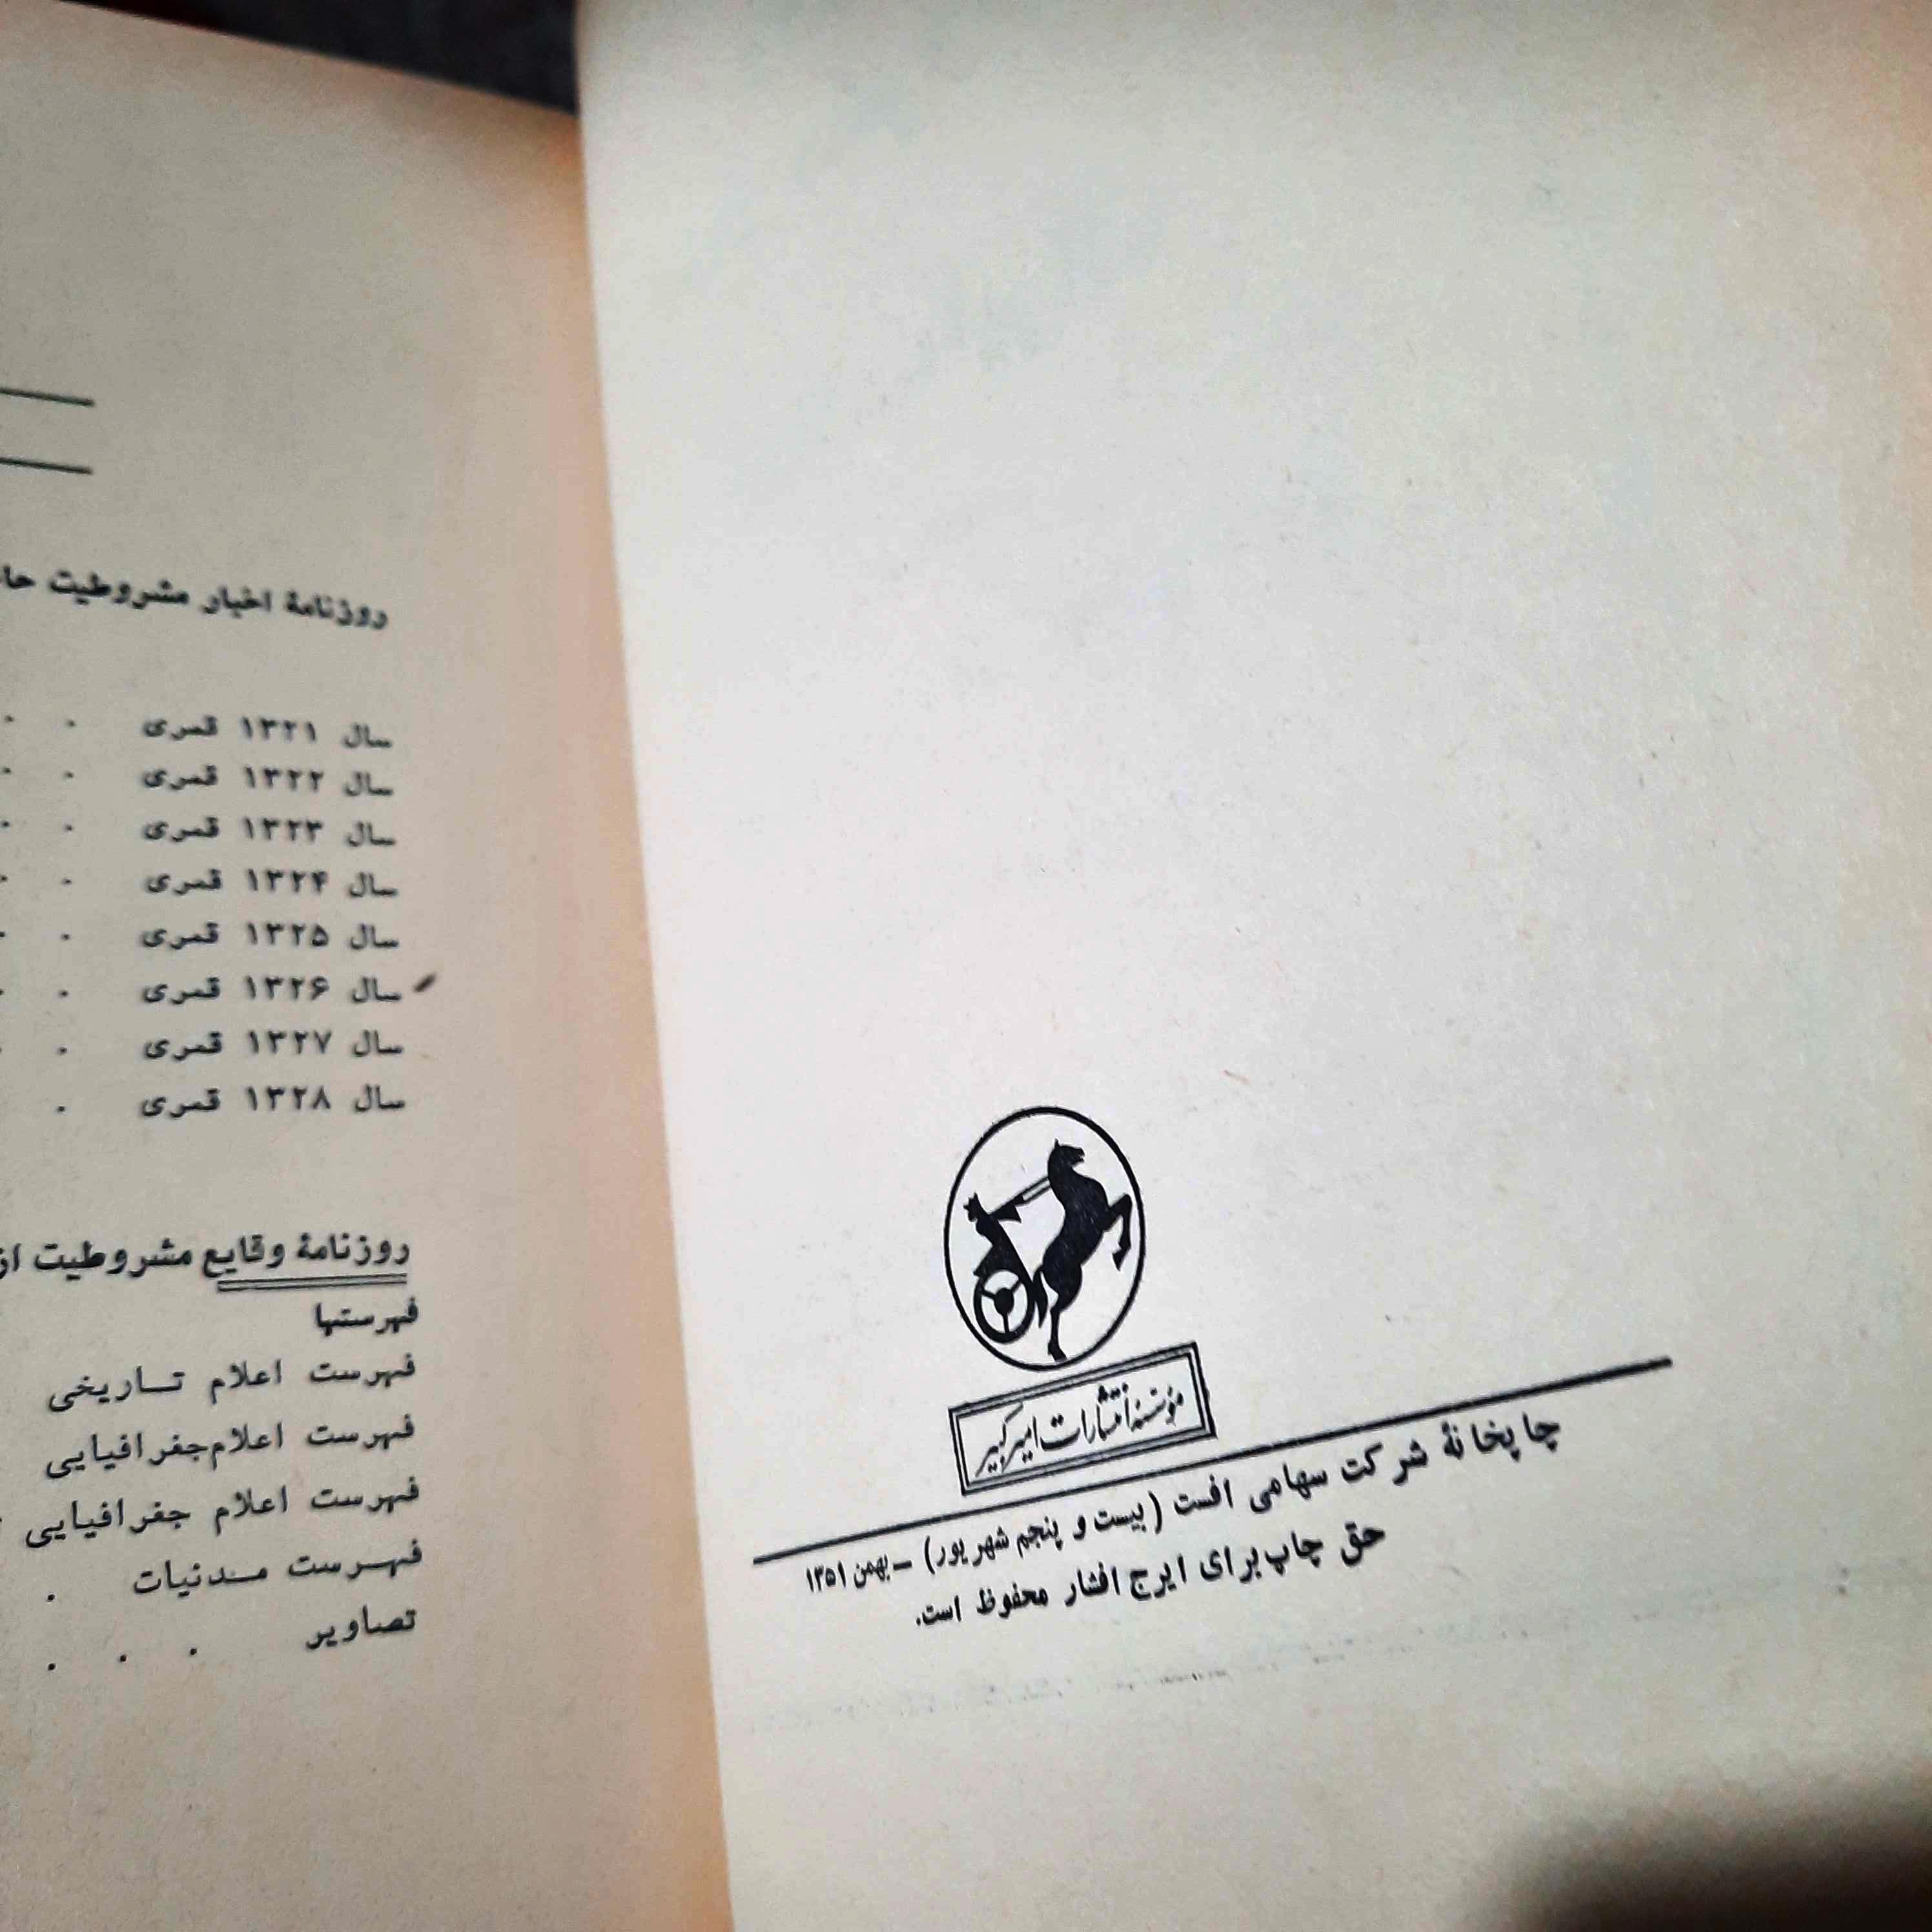 مؤسسه انتشارات امیرکبیر
چاپخانهٔ شرکت سهامی افست (بیست و پنجم شهریور) – بهمن ۱۳۵۱
حق چاپ برای ایرج افشار محفوظ است.
روزنامهٔ اخبار مشروطیت
سال ۱۳۲۱ قمری . .
سال ۱۳۲۲ قمری . .
سال ۱۳۲۳ قمری . .
سال ۱۳۲۴ قمری . .
سال ۱۳۲۵ قمری . .
سال ۱۳۲۶ قمری . .
سال ۱۳۲۷ قمری . .
سال ۱۳۲۸ قمری .
روزنامهٔ وقایع مشروطیت از
فهرستها
فهرست اعلام تــاریخی
فهرست اعلام جغرافیایی
فهرست اعلام جغرافیایی
فهــرست مــدنیات .
تصاویر . . .